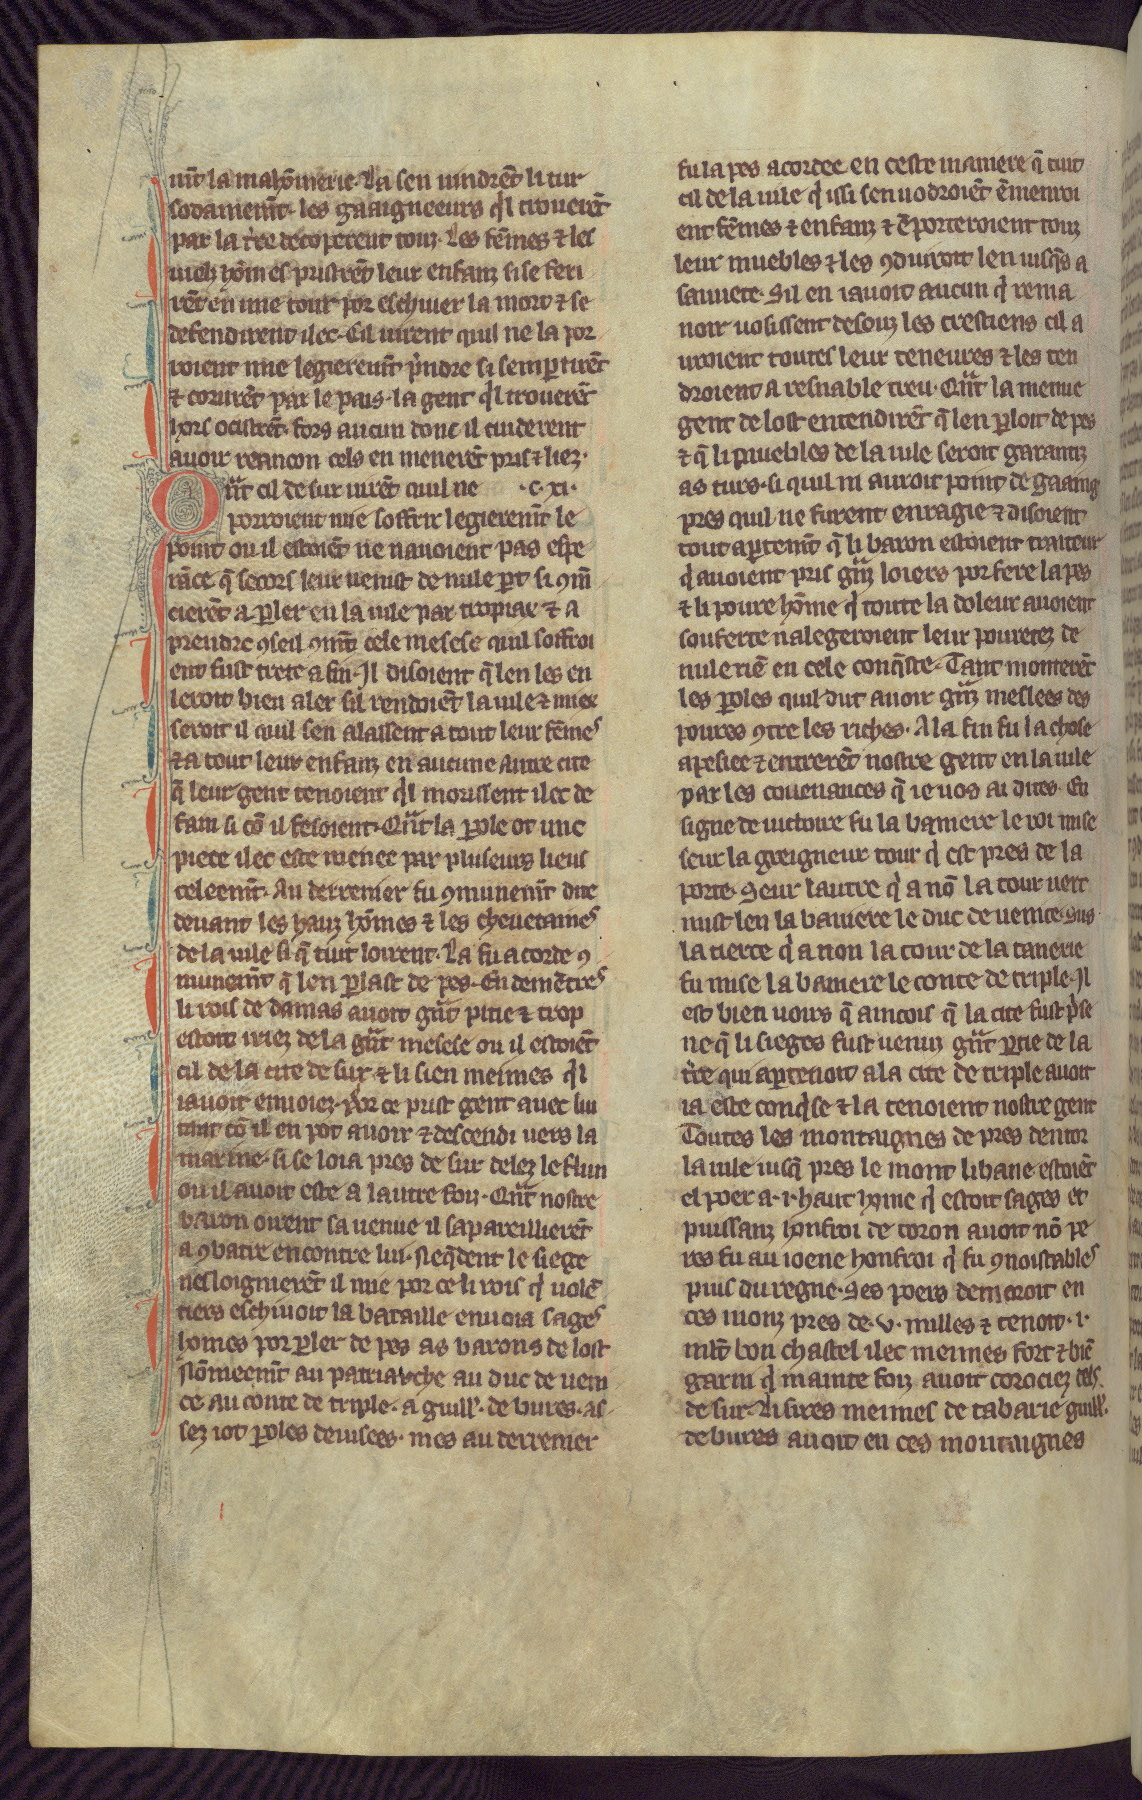 mēt la mahōmerie. La sen uindrēt li tur
sodainemt̄. les gaaigneeurs q̉l trouerēt
par la tr̄e decoperent touz. Les fēmes ⁊ les
uielz hōmes pristrēt leur enfanz si se feri
rēt en une tour por eschiuer la mort ⁊ se
defendirent ilec. Cil uirent quil ne la por
roient mie legieremt̄ p̉ndre si sempꝑtirēt
⁊ corurēt par le pais. la gent q̉l trouerēt
hors ocistrēt. fors aucun dont il cuiderent
auoir reancon cels en menerēt pris ⁊ liez.
Qūt cil de sur uirēt quil ne .c.xi.
porroient mie soffrir legieremt̄ le
point ou il estoiēt ne nauoient pas espe
rāce q̄ secors leur uenist de nule ꝑt si ꝯm̄
cierēt a ꝑler en la uile par tropiax ⁊ a
prendre ꝯseil ꝯmt̄ cele mesese quil soffroi
ent fust trete a fin. Il disoient q̄ len les en
leroit bien aler sil rendoiēt la uile ⁊ miex
seroit il quil sen alaissent a tout leur fēmes
⁊ a tout leur enfanz en aucune autre cite
q̄ leur gent tenoient q̉l morissent ilec de
fam si cō il fesoient. Qūt la ꝑole ot une
piece ilec este menee par pluseurs lieus
celeemt̄. Au derrenier fu ꝯmunemt̄ dite
deuant les hauz hōmes ⁊ les cheuetaines
de la uile si q̄ tuit loirent. La fu acorde ꝯ
munemt̄ q̄ len ꝑlast de pes. En demētres
li rois de damas auoit gn̄t pitie ⁊ trop
estoit iriez de la gn̄t mesese ou il estoiēt
cil de la cite de sur ⁊ li sien meimes q̉l
i auoit enuoiez. Por ce prist gent auec lui
tant cō il en pot auoir ⁊ descendi uers la
marine. si se loia pres de sur delez le flun
ou il auoit este a lautre foiz. Qūt nostre
baron oirent sa uenue il sapareillierēt
a ꝯbatre encontre lui. Neq̄dent le siege
neslongnierēt il mie por ce li rois q̉ uolē
tiers eschiuoit la bataille enuoia sages
homes por ꝑler de pes as barons de lost
nōmeemt̄ au patriarche au duc de ueni
ce au conte de triple. a guill̄. de bures. as
sez i ot ꝑoles deuisees. mes au derrenier
fu la pes acordee en ceste maniere q̄ tuit
cil de la uile q̉ issi sen uodroiēt ēmenroi
ent fēmes ⁊ enfanz ⁊ ēporteroient touz
leur muebles ⁊ les ꝯduiroit len iusq̄s a
sauuete. Sil en i auoit aucun q̉ rema
noir uosissent desouz les crestiens cil a
uroient toutes leur teneures ⁊ les ten
droient a resnable treu. Qūt la menue
gent de lost entendirēt q̄ len ꝑloit de pes
⁊ q̄ li muebles de la uile seroit garantiz
as turs. si quil ni auroit point de gaaing
pres quil ne furent enragie ⁊ disoient
tout aꝑtemt̄ q̄ li baron estoient traiteur
q̉ auoient pris gn̄z loiers por fere la pes
⁊ li poure hōme q̉ toute la doleur auoient
souferte nalegeroient leur pouretez de
nule riē en cele conq̄ste. Tant monterēt
les ꝑoles quil dut auoir gn̄z meslees des
poures ꝯtre les riches. A la fin fu la chose
apesiee ⁊ entrerēt nostre gent en la uile
par les couenances q̄ ie uos ai dites. En
signe de uictoire fu la baniere le roi mise
seur la greigneur tour q̉ est pres de la
porte. Seur lautre q̉ a nō la tour uert
mist len la baniere le duc de uenice. Sus
la tierce q̉ a non la tour de la tanerie
fu mise la baniere le conte de triple. Il
est bien uoirs q̄ aincois q̄ la cite fust p̉se
ne q̄ li sieges fust uenuz gn̄t ꝑtie de la
tr̄e qui aꝑtenoit a la cite de triple auoit
ia este conq̉se ⁊ la tenoient nostre gent
Toutes les montaignes de pres dentor
la uile iusq̄ pres le mont libane estoiēt
el poer a .i. haut home q̉ estoit sages et
puissanz honfroi de toron auoit nō pe
res fu au ioene honfroi q̉ fu ꝯnoistables
puis du regne. Ses poers demoroit en
ces monz pres de .v. milles ⁊ tenoit .i.
mlt̄ bon chastel ilec meimes fort ⁊ biē
garni q̉ mainte foiz auoit corociez cels
de sur. Li sires meimes de tabarie guill̄.
de bures auoit en ces montaignes